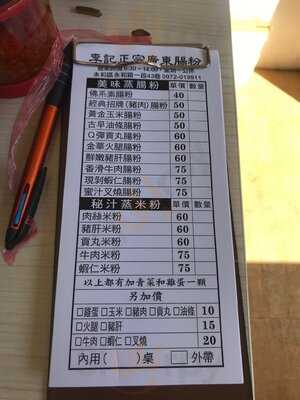 李記正宗廣東腸粉
營業時間6:30~14:00
永和區永和路一段43巷 0972-019911
美味蒸腸粉 單價 數量
佛系素腸粉 40
經典招牌(豬肉)腸粉 50
黃金玉米腸粉 50
古早油條腸粉 50
Q彈貢丸腸粉 60
金華火腿腸粉 60
鮮嫩豬肝腸粉 60
香滑牛肉腸粉 75
現剝蝦仁腸粉 75
蜜汁叉燒腸粉 75
秘汁蒸米粉 單價 數量
肉絲米粉 60
豬肝米粉 60
貢丸米粉 60
牛肉米粉 75
蝦仁米粉 75
以上都有加青菜和雞蛋一顆
另加價
□雞蛋 □玉米 □豬肉 □貢丸 □油條 10
□火腿 □豬肝 15
□牛肉 □蝦仁 □叉燒 20
內用( )桌 □外帶